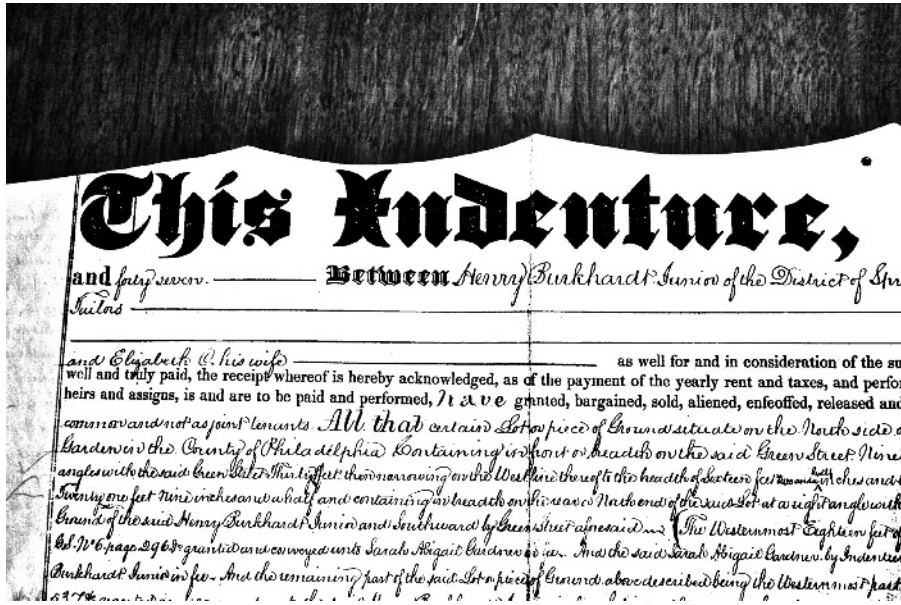 This Indenture,
and forty seven. Between Henry Burkhardt Junior of the District of Spr
Tailors
and Elizabeth C. his wife as well for and in consideration of the su
well and truly paid, the receipt whereof is hereby acknowledged, as of the payment of the yearly rent and taxes, and perfor
heirs and assigns, is and are to be paid and performed, have granted, bargained, sold, aliened, enfeoffed, released and
common and not as joint tenants. All that certain Lot or piece of Ground situate on the North side o
Garden in the County of Philadelphia Containing in front or breadth on the said Green Street Nine
angles with the said Green Street Thirty feet then narrowing on the West line thereof to the breadth of Sixteen feet inches and
Twenty one feet Nine inches and a half and containing in breadth on the rear or North end of the said Lot at a right angle with
Ground of the said Henry Burkhardt Junior and Southward by Green Street aforesaid (The Westernmost Eighteen feet of
G.S. No 6. page 296 &c granted and conveyed unto Sarah Abigail Gardner in fee. And the said Sarah Abigail Gardner by Indenture
Burkhardt Junior in fee. And the remaining part of the said Lot or piece of Ground above described being the Westernmost part